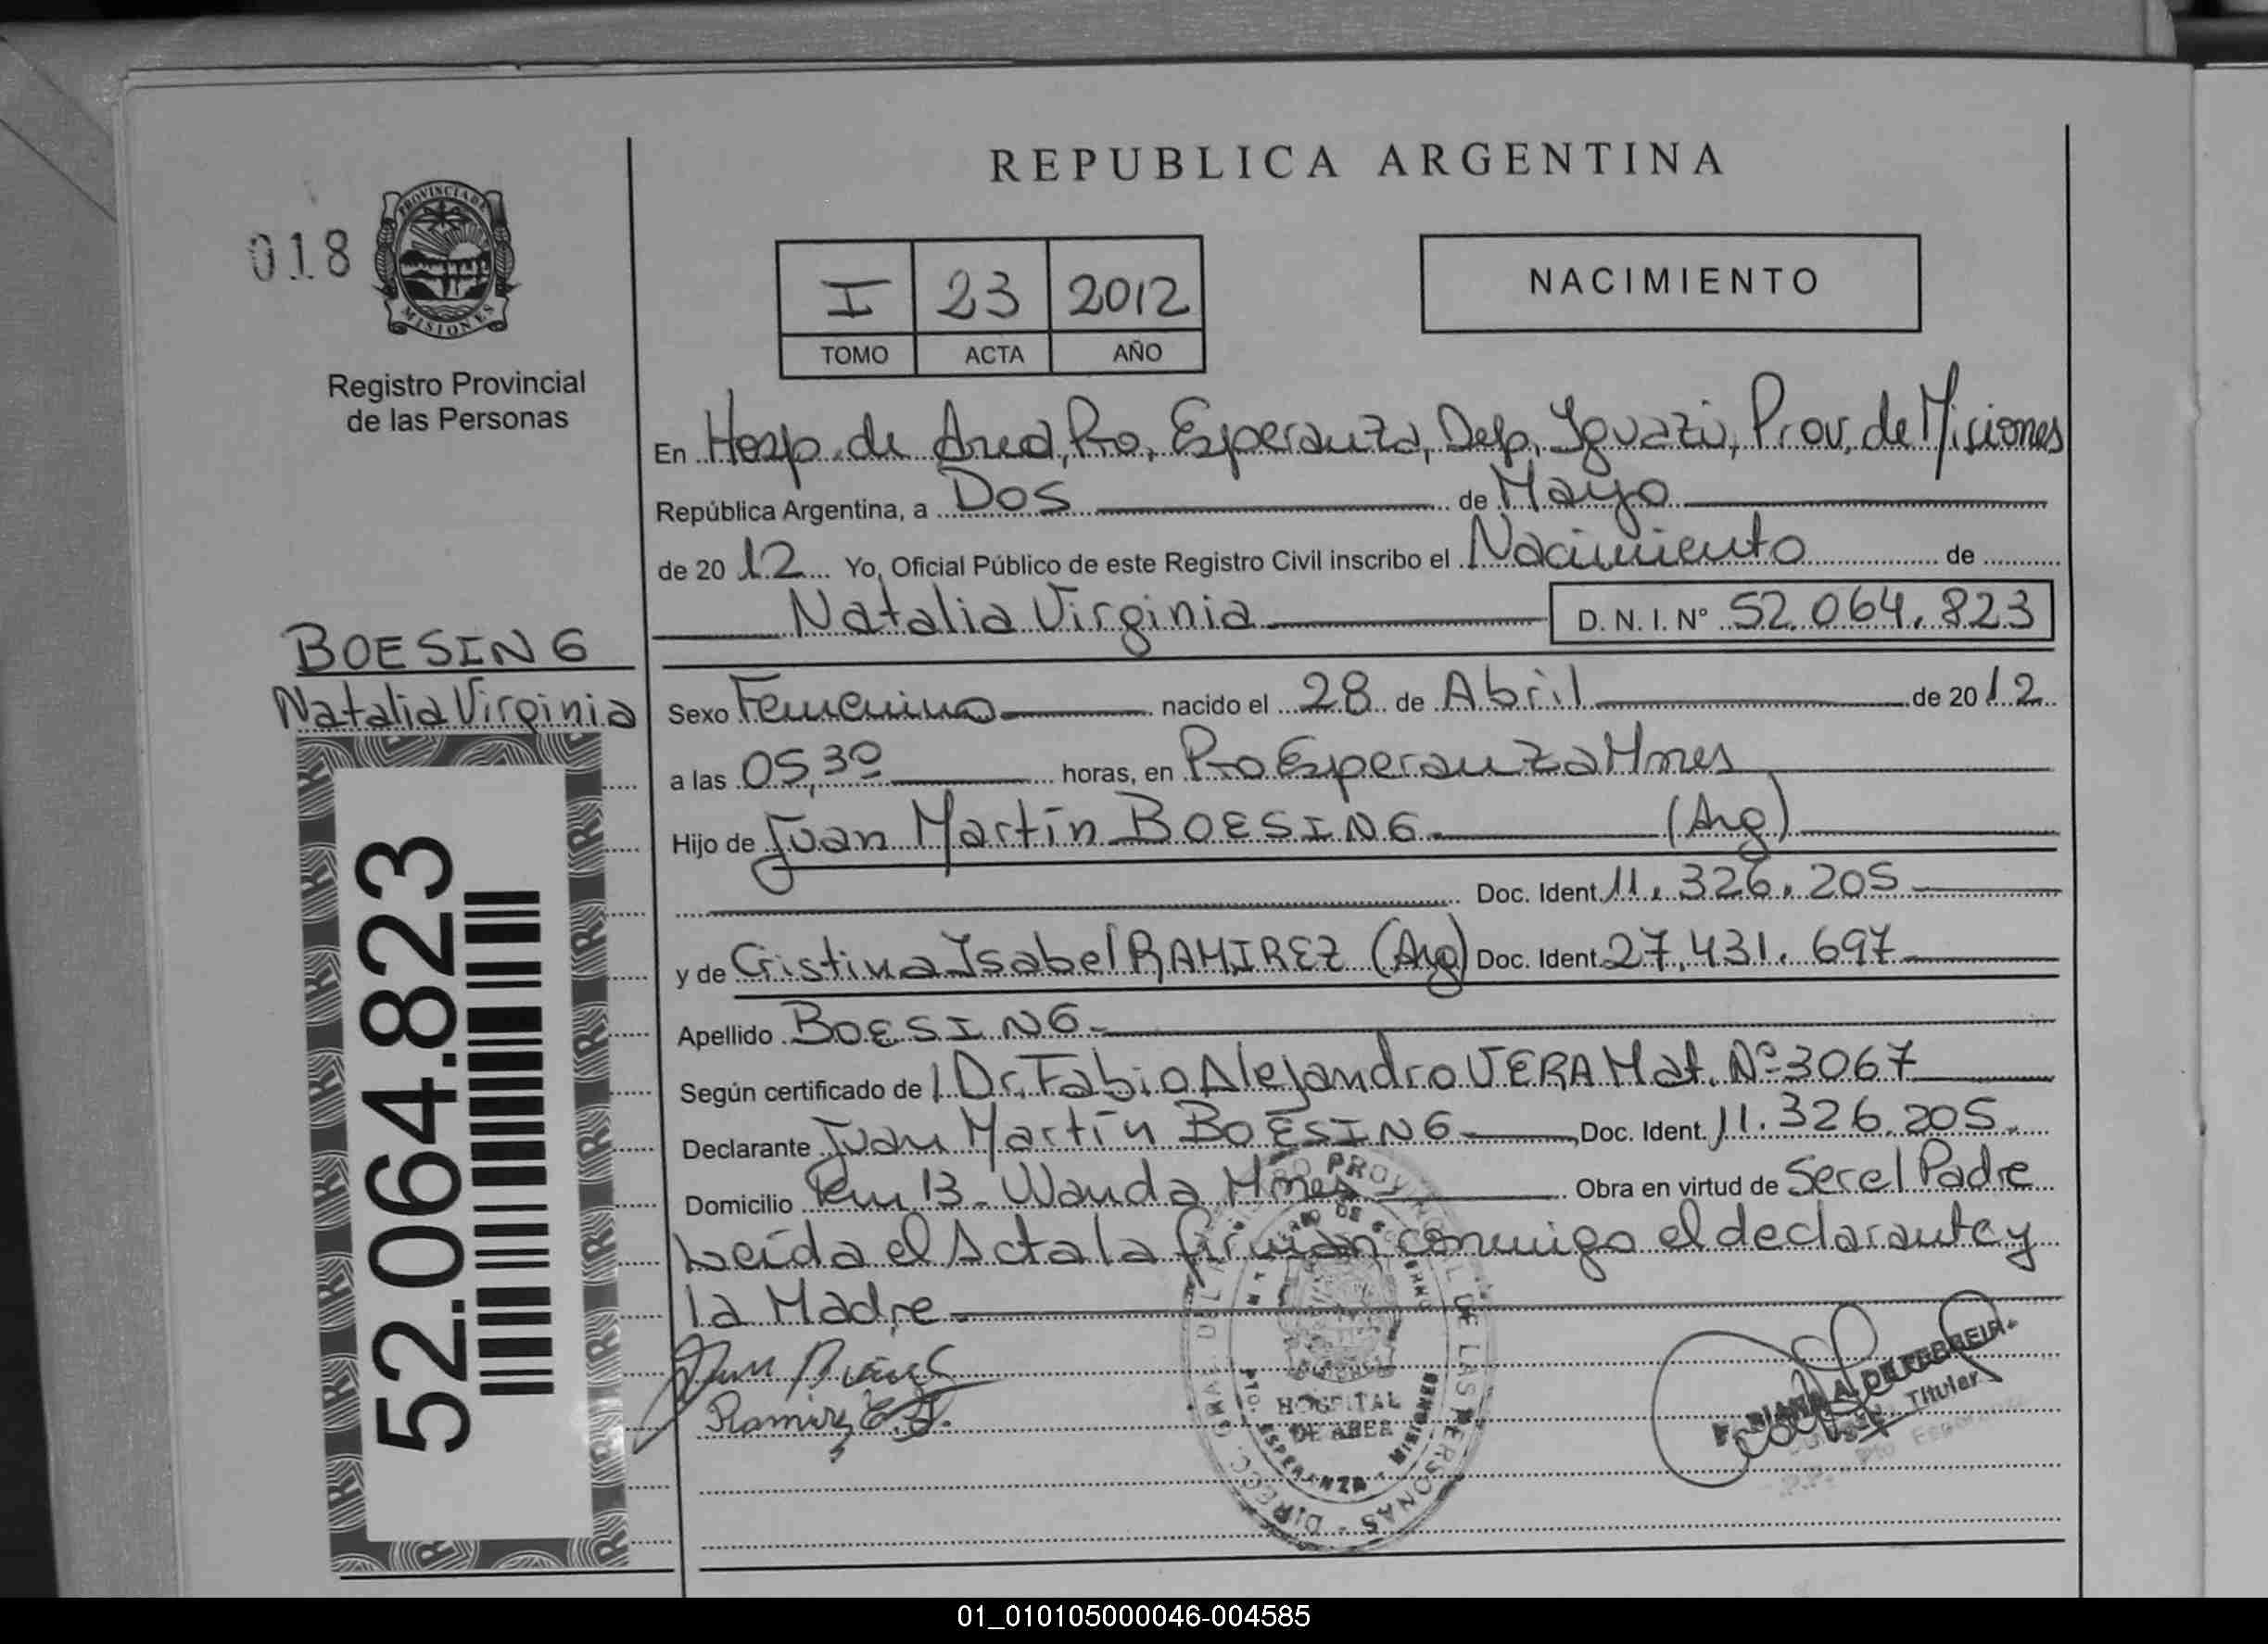 REPUBLICA ARGENTINA
018
PROVINCIA DE
MISIONES
Registro Provincial
de las Personas
I 23 2012
TOMO ACTA AÑO
NACIMIENTO
En Hosp. de Area, Pto, Esperanza, Dep, Iguazú, Prov. de Misiones
República Argentina, a Dos de Mayo
de 2012 Yo, Oficial Público de este Registro Civil inscribo el Nacimiento de
Natalia Virginia D. N. I. N° 52.064.823
BOESING
Natalia Virginia
Sexo Femenino nacido el 28 de Abril de 2012
a las 05,30 horas, en Pto Esperanza Mnes
Hijo de Juan Martín BOESING (Arg)
Doc. Ident. 11.326.205
y de Cristina Isabel RAMIREZ (Arg) Doc. Ident. 27.431.697
Apellido BOESING
Según certificado de Dr. Fabio Alejandro VERA Mat. Nº 3067
Declarante Juan Martín BOESING Doc. Ident. 11.326.205
Domicilio Km 13 - Wanda Mnes Obra en virtud de Ser el Padre
Leída el Acta la firman conmigo el declarante y
la Madre
52.064.823
Ramirez C.I.
HOSPITAL
DE AREA
PTO. ESPERANZA - MISIONES
Titular
01_010105000046-004585